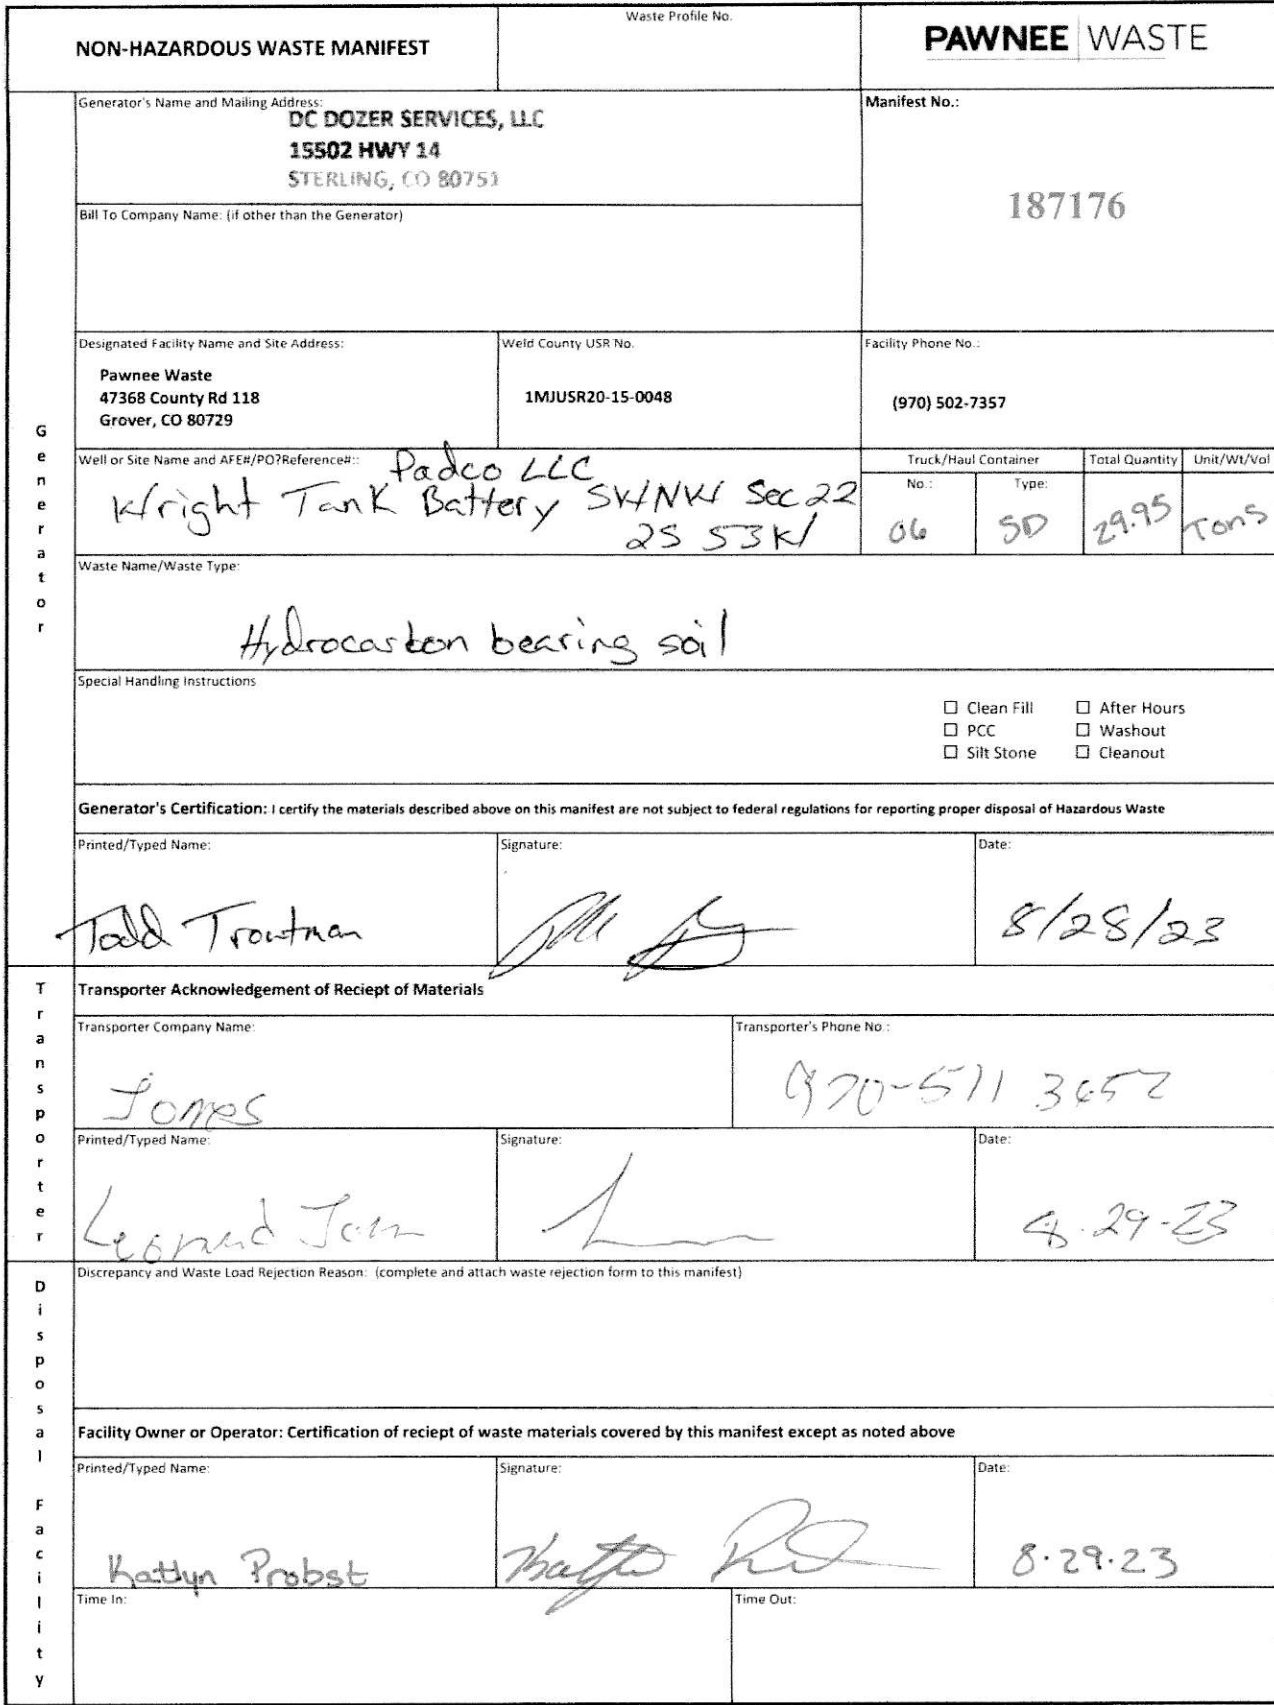 NON-HAZARDOUS WASTE MANIFEST
Waste Profile No.
PAWNEE WASTE
Generator's Name and Mailing Address:
DC DOZER SERVICES, LLC
15502 HWY 14
STERLING, CO 80751
Manifest No.:
187176
Bill To Company Name: (if other than the Generator)
Designated Facility Name and Site Address:
Pawnee Waste
47368 County Rd 118
Grover, CO 80729
Weld County USR No.
1MJUSR20-15-0048
Facility Phone No.:
(970) 502-7357
Generator
Well or Site Name and AFE#/PO?Reference#::
Padco LLC
Wright Tank Battery SWNW Sec 22
2S 53W
Truck/Haul Container
No.:
06
Type:
SD
Total Quantity
29.95
Unit/Wt/Vol
Tons
Waste Name/Waste Type:
Hydrocarbon bearing soil
Special Handling Instructions
☐ Clean Fill ☐ After Hours
☐ PCC ☐ Washout
☐ Silt Stone ☐ Cleanout
Generator's Certification: I certify the materials described above on this manifest are not subject to federal regulations for reporting proper disposal of Hazardous Waste
Printed/Typed Name:
Todd Troutman
Signature:
Date:
8/28/23
Transporter
Transporter Acknowledgement of Reciept of Materials
Transporter Company Name:
Jones
Transporter's Phone No.:
970-571 3652
Printed/Typed Name:
Leonard
Signature:
Date:
8-29-23
Disposal Facility
Discrepancy and Waste Load Rejection Reason: (complete and attach waste rejection form to this manifest)
Facility Owner or Operator: Certification of reciept of waste materials covered by this manifest except as noted above
Printed/Typed Name:
Katlyn Probst
Signature:
Date:
8.29.23
Time In:
Time Out: